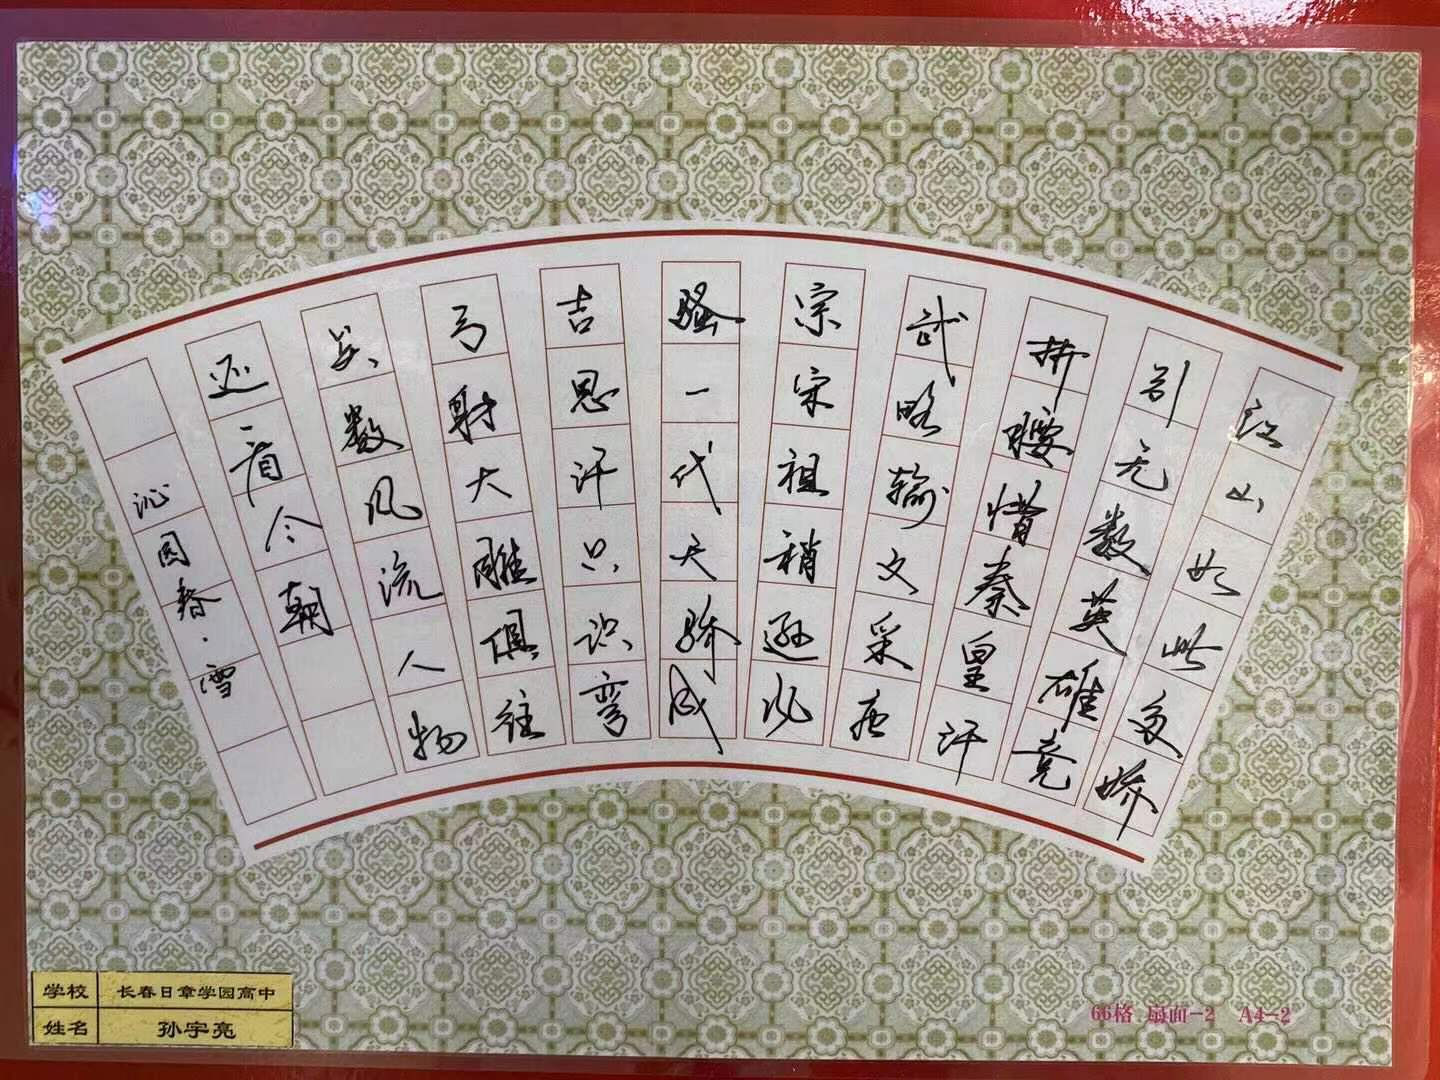 江山如此多娇
引无数英雄竞
折腰惜秦皇汗
武略输文采唐
宗宋祖稍逊风
骚一代天骄成
吉思汗只识弯
弓射大雕俱往
矣数风流人物
还看今朝
沁园春·雪
学校 长春日章学园高中
姓名 孙宇亮
66格 扇面-2 A4-2